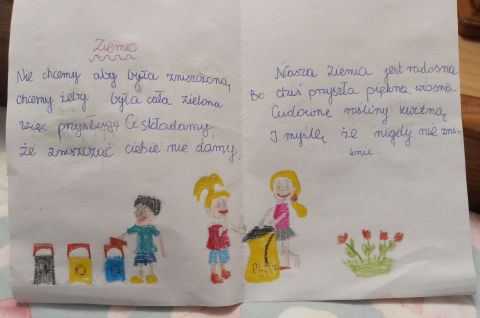 Ziemia
Nie chcemy aby była zniszczona,
chcemy żeby była cała zielona
więc przysługę Ci składamy,
że zniszczać ciebie nie damy.
Nasza Ziemia jest radosna
Bo dziś przyszła piękna wiosna
Cudowne rośliny kwitną,
I myślę że nigdy nie zni-
knie.